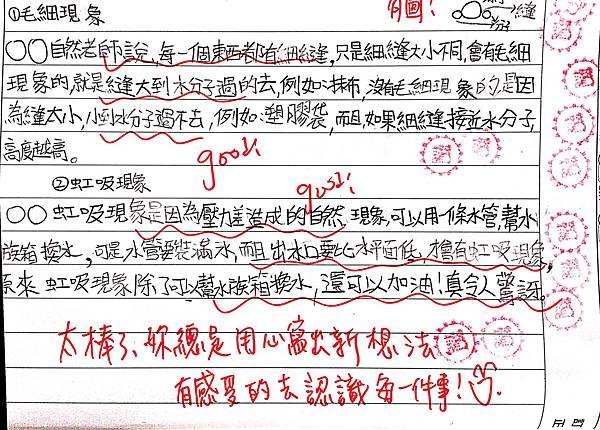 ①毛細現象
有圖!
縫
分子
○○自然老師說,每一個東西都有細縫,只是細縫大小不同,會有毛細
現象的,就是縫大到水分子過的去,例如:抹布,沒有毛細現象的是因
為縫太小,小到水分子過不去,例如:塑膠袋,而且,如果細縫接近水分子,
高度越高。
good!
②虹吸現象
good!
○○虹吸現象是因為壓力差造成的自然現象,可以用一條水管,幫水
族箱換水,可是水管要裝滿水,而且出水口要比水平面低,才會有虹吸現象,
原來虹吸現象除了可以幫水族箱換水,還可以加油!真令人驚訝。
太棒了、妳總是用心寫出新想法
有感受的去認識每一件事!